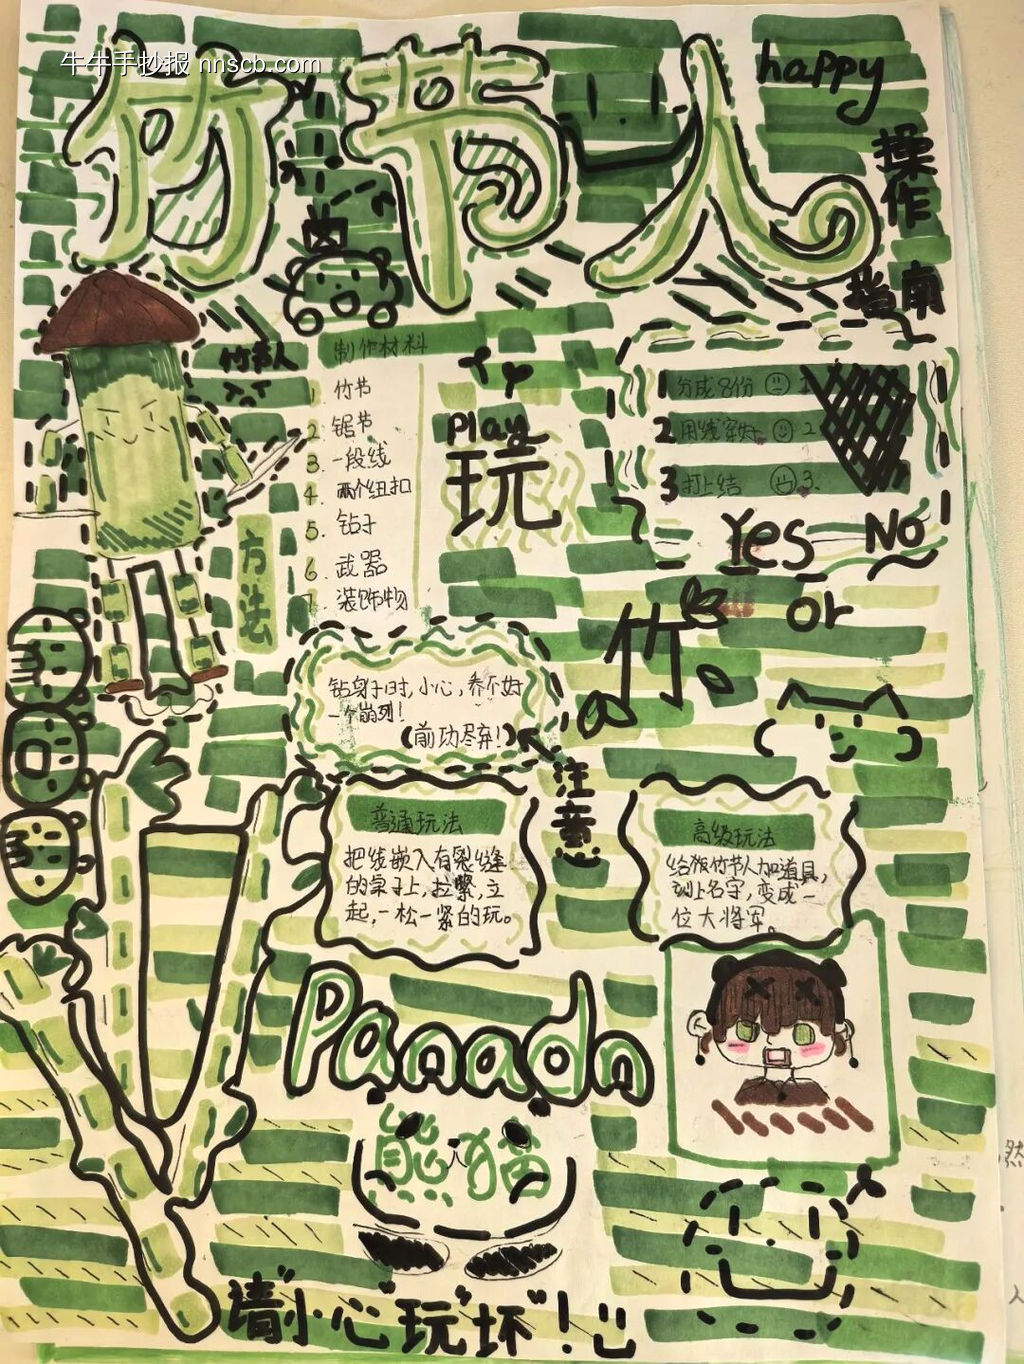 牛牛手抄报 nnscb.com
竹节人
happy
操作
指南
竹节人
制作材料
1 竹节
2 锯节
3. 一段线
4. 两个纽扣
5. 钻子
6. 武器
7. 装饰物
方法
Try
Play
玩
1 分成8份 1.
2 用线穿好 2
3 打上结 3.
Yes No!
or
竹
钻身子时,小心,乔不好
一个崩列!
(前功尽弃!)
注意
普通玩法
把线嵌入有裂缝
的桌子上,拉紧,立
起,一松一紧的玩。
高级玩法
给彼竹节人加道具,
刻上名字,变成一
位大将军。
Panadn
熊猫
请小心"玩"坏"!